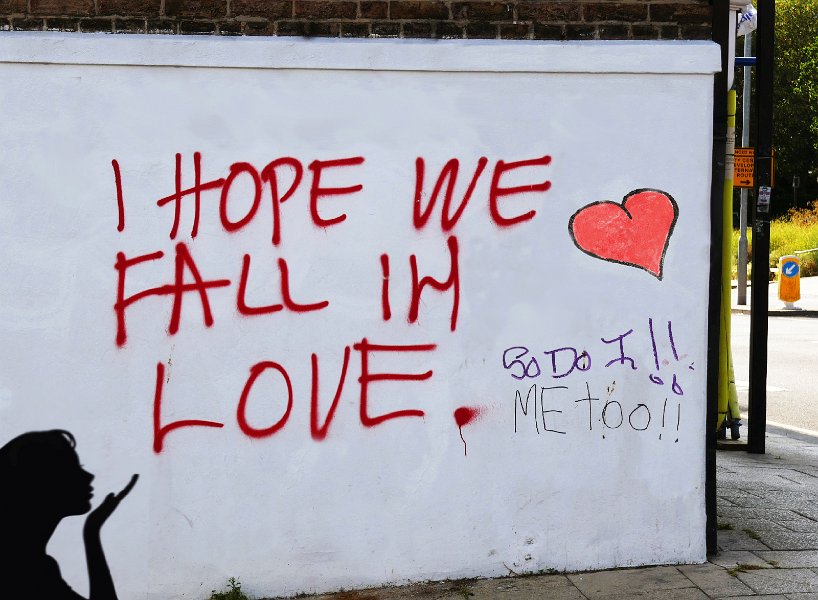 I HOPE WE
FALL IN
LOVE.
SO DO I!!
ME too!!